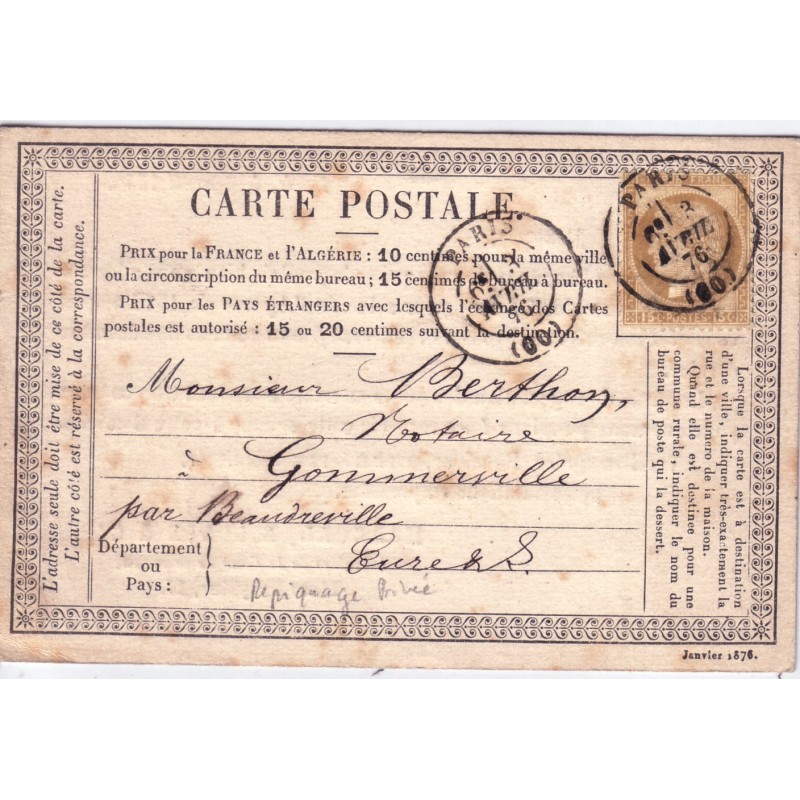 CARTE POSTALE.
PRIX pour la FRANCE et l'ALGÉRIE : 10 centimes pour la même ville
ou la circonscription du même bureau ; 15 centimes de bureau à bureau.
PRIX pour les PAYS ÉTRANGERS avec lesquels l'échange des Cartes
postales est autorisé : 15 ou 20 centimes suivant la destination.
Monsieur Berthon,
Notaire
à Gommerville
par Beaudreville
Département
ou
Pays :
Eure & L.
Repiquage Privé
L'adresse seule doit être mise de ce côté de la carte.
L'autre côté est réservé à la correspondance.
Lorsque la carte est à destination
d'une ville, indiquer très-exactement la
rue et le numero de la maison.
Quand elle est destinée pour une
commune rurale, indiquer le nom du
bureau de poste qui la dessert.
PARIS
3
AVRIL
76
(60)
PARIS
3
AVRIL
76
(60)
15 C. POSTES 15 C.
Janvier 1876.